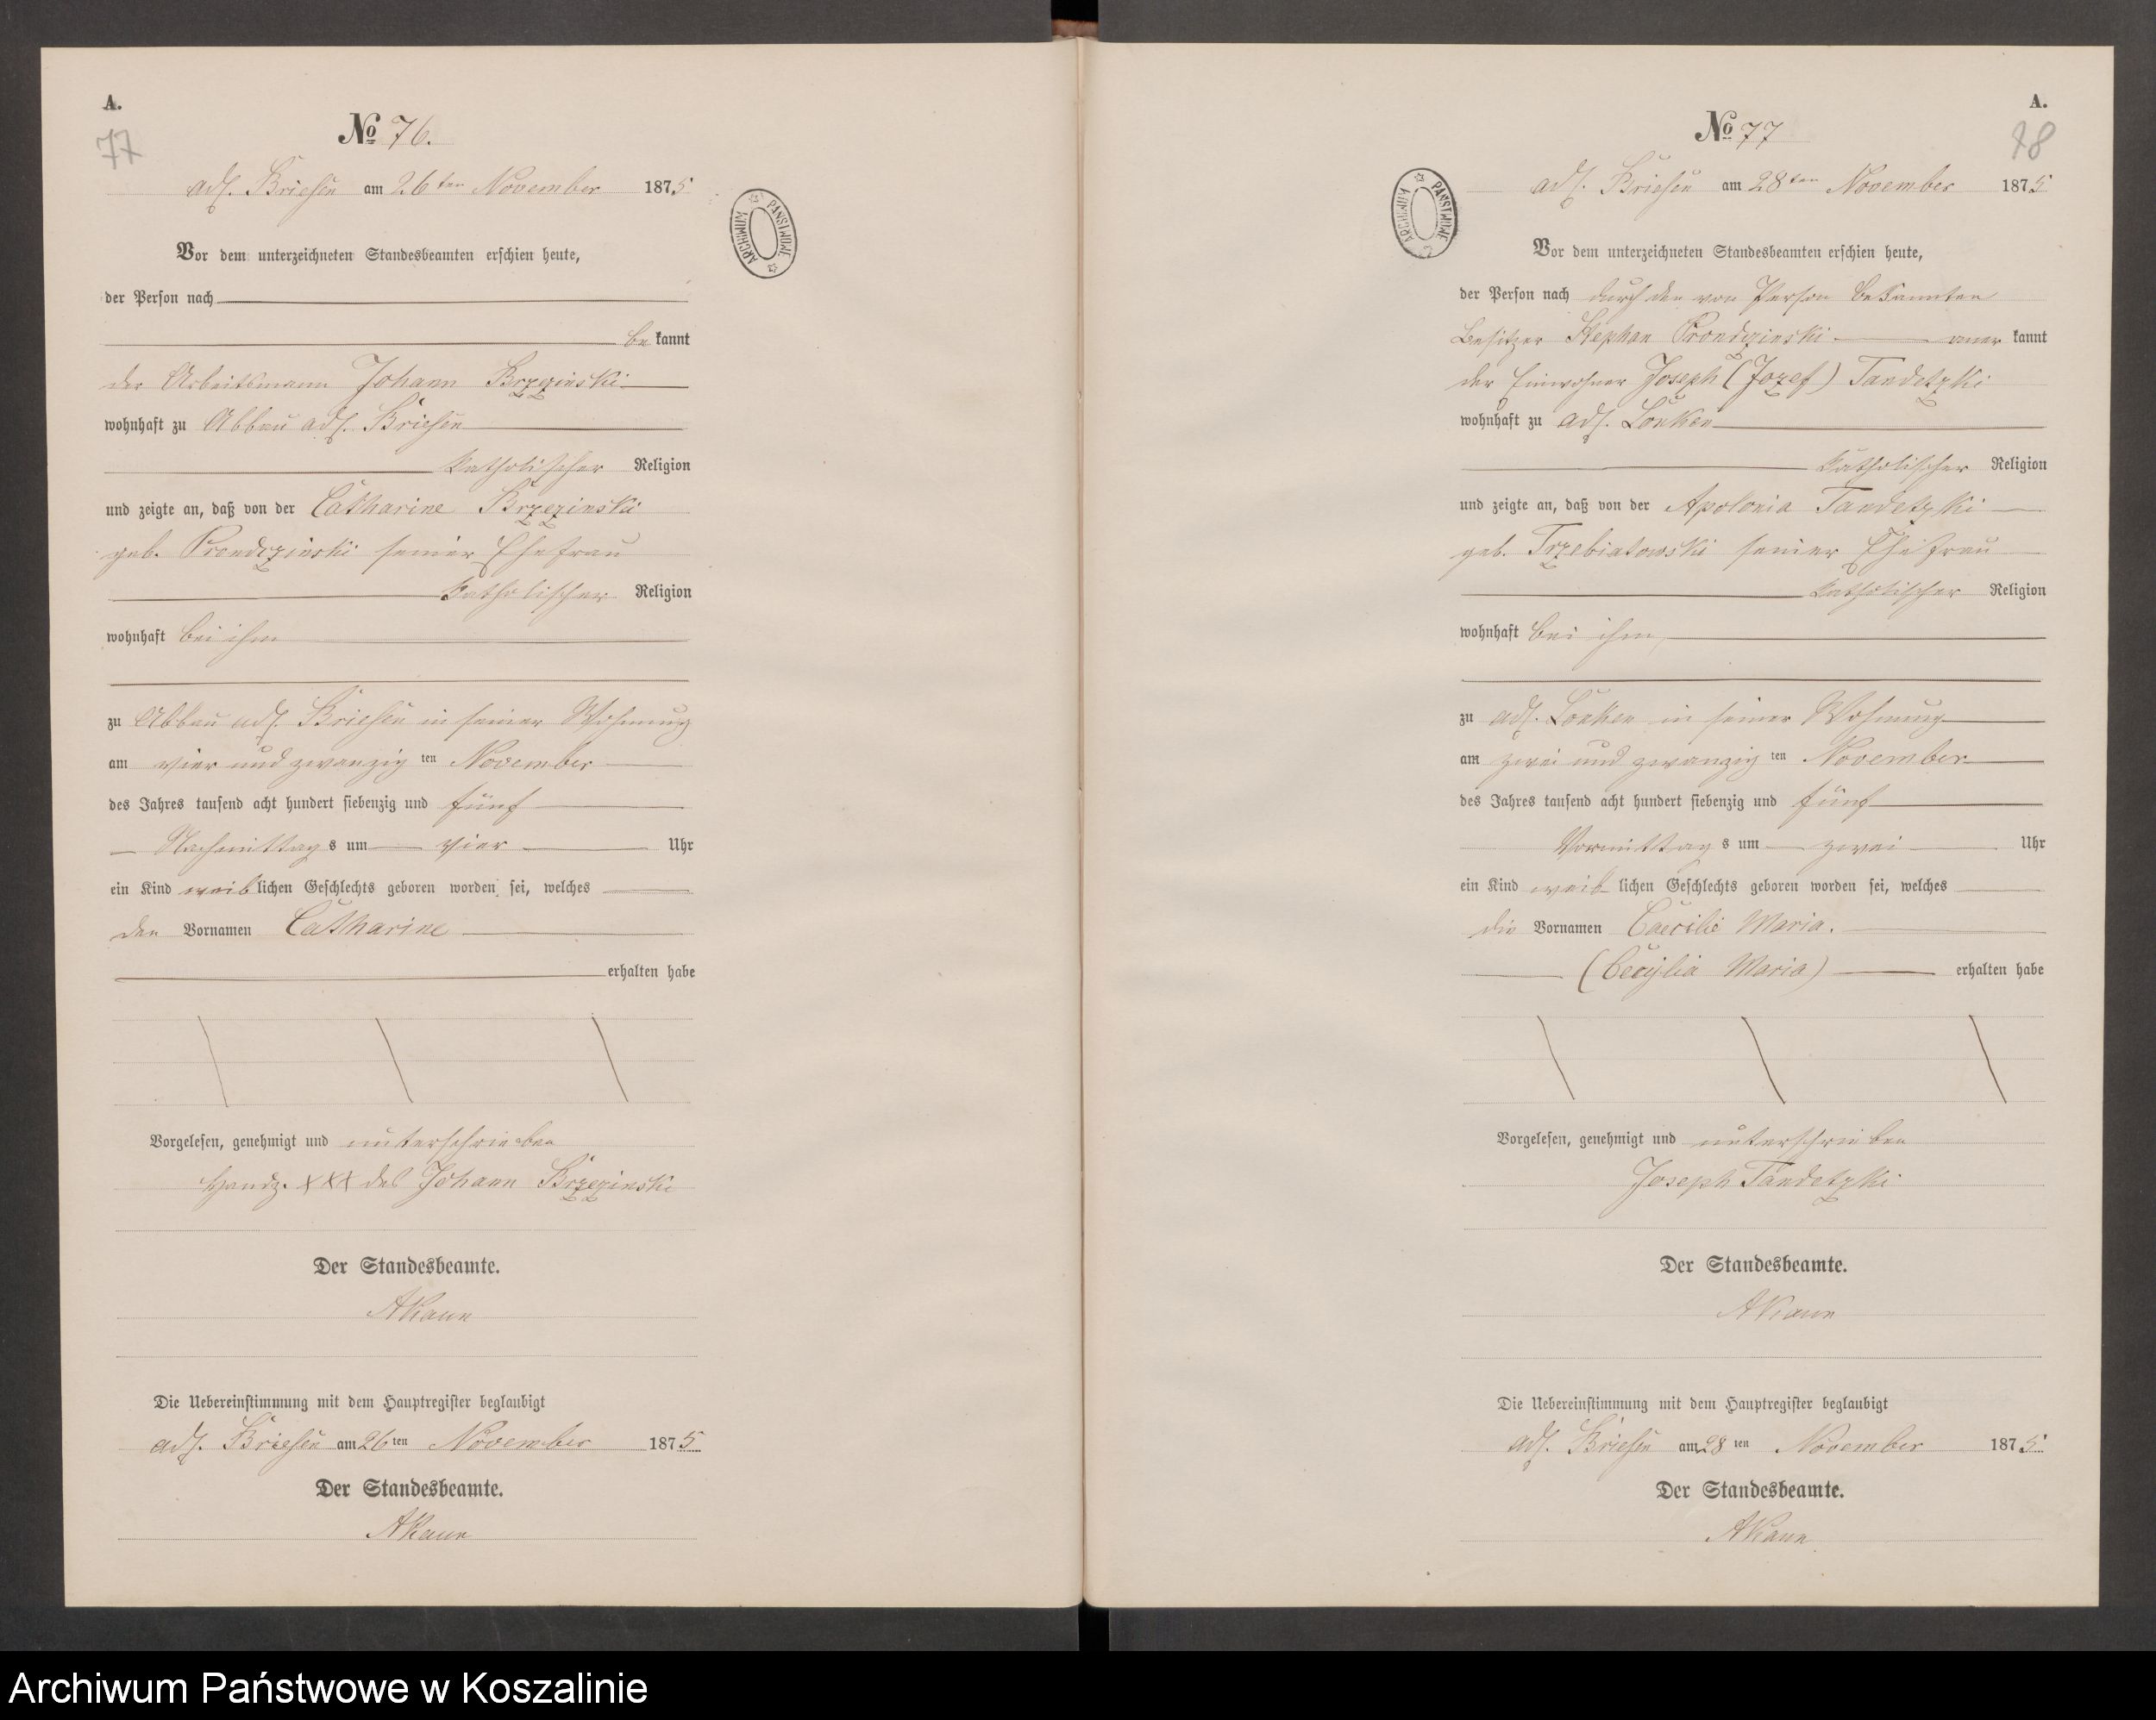 A.
77
No 76.
adl. Briesen am 26ten November 1875
Vor dem unterzeichneten Standesbeamten erschien heute,
der Person nach
bekannt
der Arbeitsmann Johann Brzezinski
wohnhaft zu Abbau adl. Briesen
katholischer Religion
und zeigte an, daß von der Catharine Brzezinski
geb. Prondzinski seiner Ehefrau
katholischer Religion
wohnhaft bei ihm
zu Abbau adl. Briesen in seiner Wohnung
am vier und zwanzig ten November
des Jahres tausend acht hundert siebenzig und fünf
Nachmittag s um vier Uhr
ein Kind weiblichen Geschlechts geboren worden sei, welches
den Vornamen Catharine
erhalten habe
Vorgelesen, genehmigt und unterschrieben
Handz. XXX des Johann Brzezinski
Der Standesbeamte.
AKaun
Die Uebereinstimmung mit dem Hauptregister beglaubigt
adl. Briesen am 26ten November 1875
Der Standesbeamte.
AKaun
ARCHIWUM PAŃSTWOWE
A.
78
No 77
adl. Briesen am 28ten November 1875
Vor dem unterzeichneten Standesbeamten erschien heute,
der Person nach durch den von Person bekannten
Besitzer Stephan Prondzinski anerkannt
der Einwohner Joseph (Jozef) Tandetzki
wohnhaft zu adl. Lonken
katholischer Religion
und zeigte an, daß von der Apolonia Tandetzki
geb. Trzebiatowski seiner Ehefrau
katholischer Religion
wohnhaft bei ihm,
zu adl. Lonken in seiner Wohnung
am zwei und zwanzig ten November
des Jahres tausend acht hundert siebenzig und fünf
Vormittag s um zwei Uhr
ein Kind weib lichen Geschlechts geboren worden sei, welches
die Vornamen Caecilie Maria.
(Cecylia Maria) erhalten habe
Vorgelesen, genehmigt und unterschrieben
Joseph Tandetzki
Der Standesbeamte.
AKaun
Die Uebereinstimmung mit dem Hauptregister beglaubigt
adl. Briesen am 28ten November 1875
Der Standesbeamte.
AKaun
ARCHIWUM PAŃSTWOWE
Archiwum Państwowe w Koszalinie